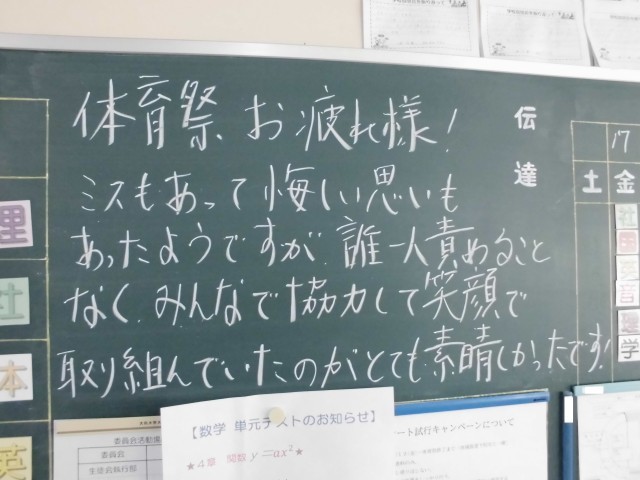 体育祭 お疲れ様!
ミスもあって悔しい思いも
あったようですが、誰一人責めること
なく、みんなで協力して笑顔で
取り組んでいたのがとても素晴しかったです!
伝達
17
土 金
理
社
本
英
学
委員会
【数学 単元テストのお知らせ】
★4章 関数 y=ax²★
ート試行キャンペーンについて